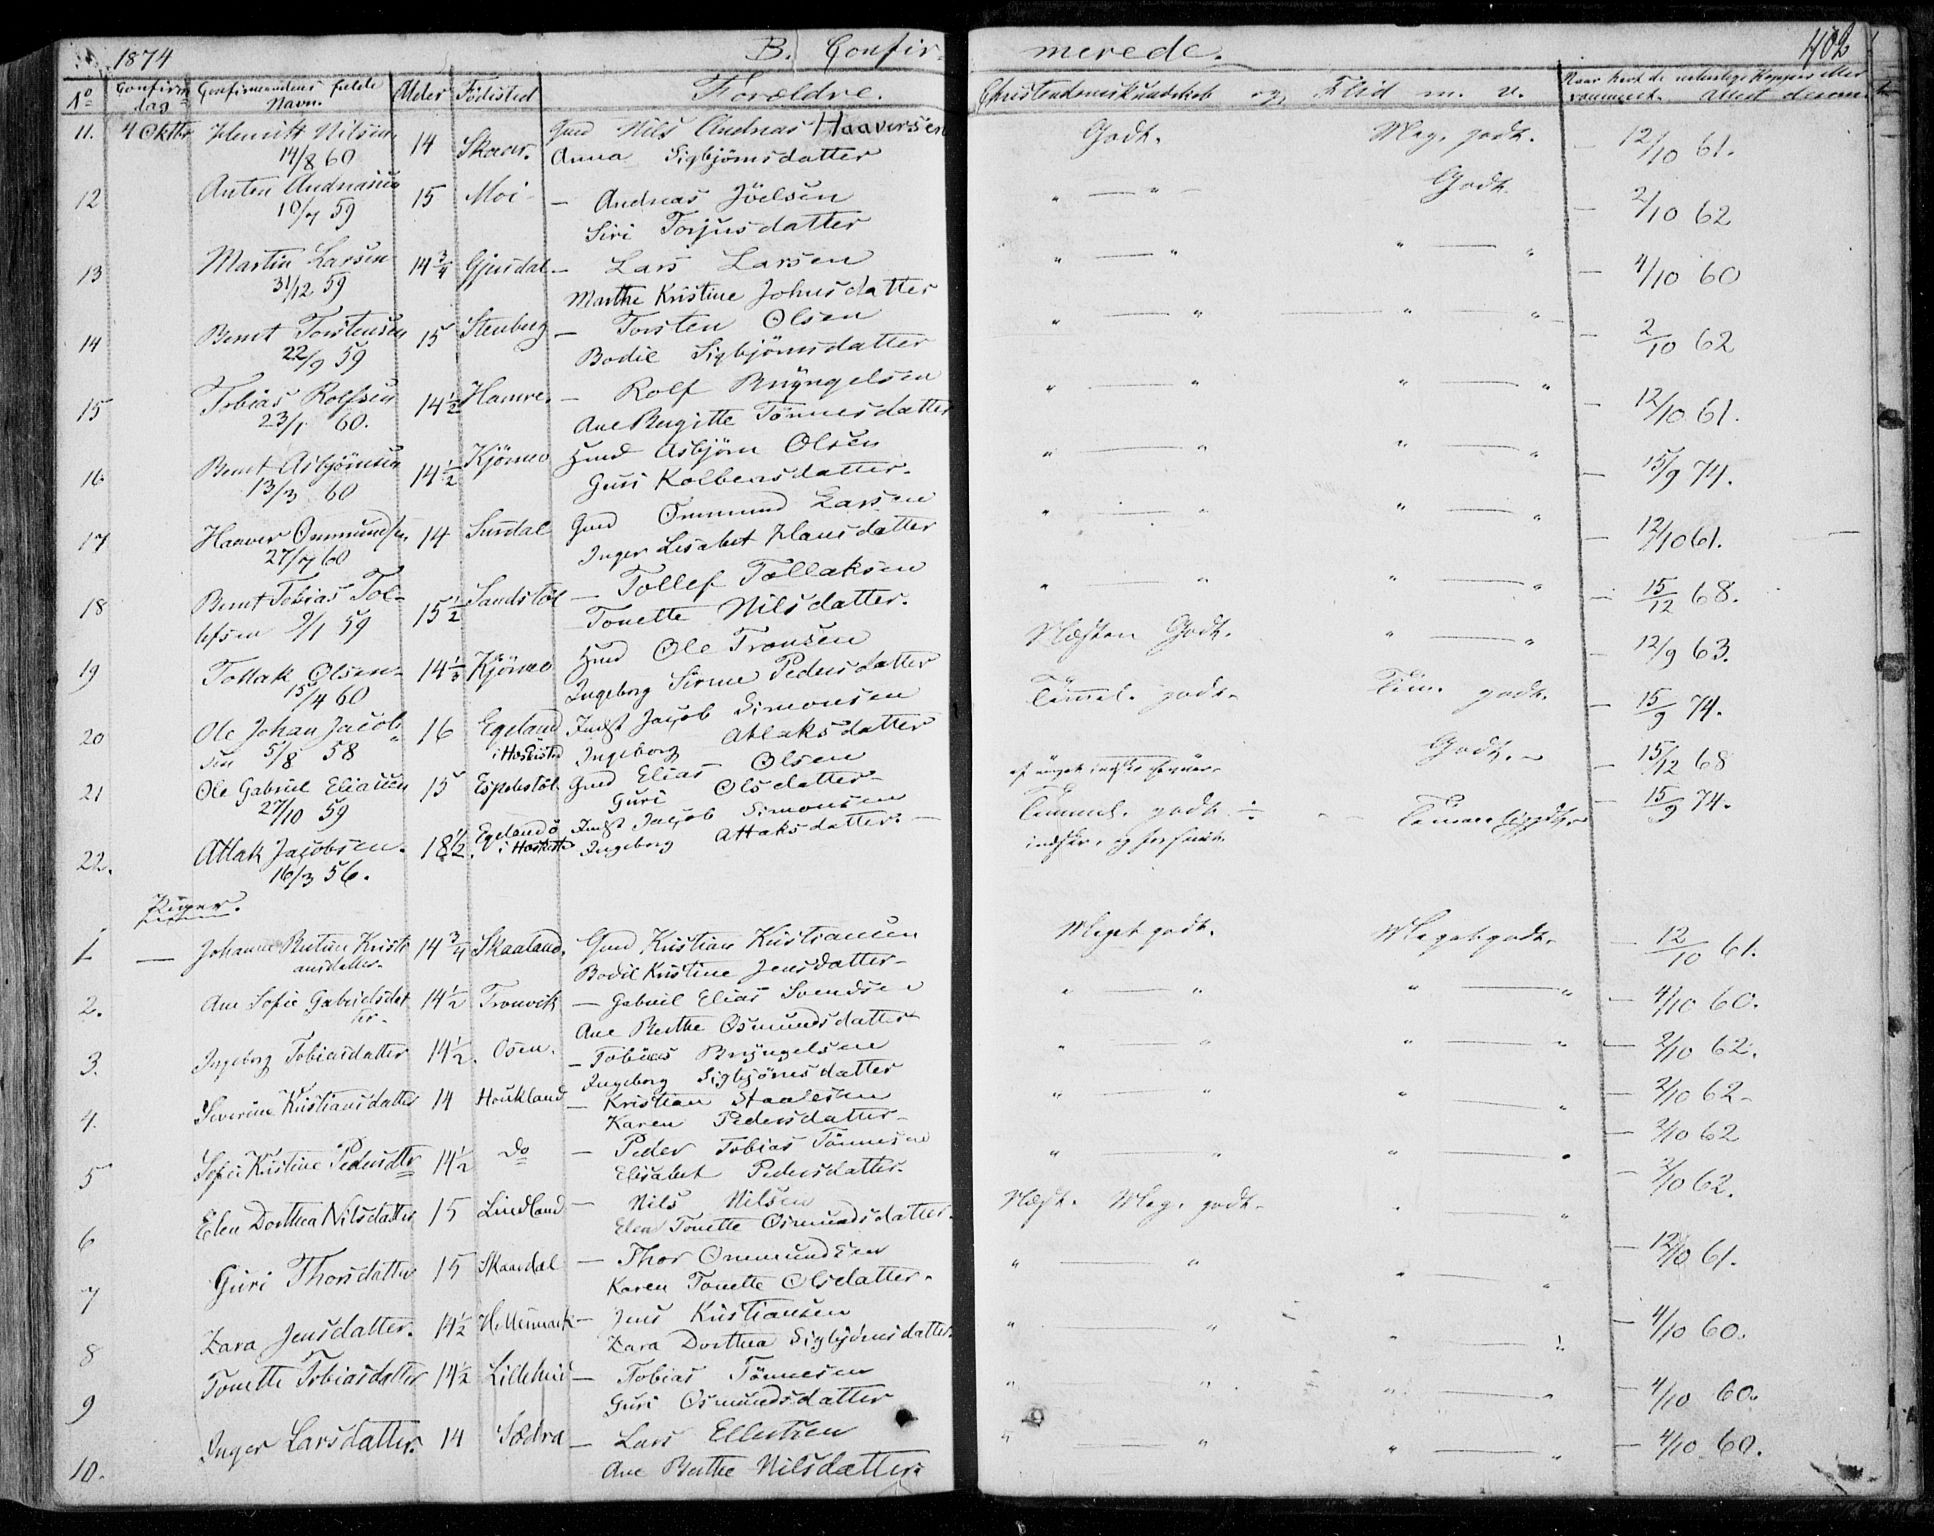 1874 B. Confirmerede. 402
No Confirm dag Confirmandens fulde Navn. Alder Födested Forældre. Christendomskundskab og Flid m. v. Naar havt de naturlige Kopper eller vaccineret.
11. 4 Oktbr Henrik Nilsen 14 Skaar. Gmd Nils Andreas Haaversen Godt. Meg. godt. — 12/10 61.
14/8 60 Anna Sigbjörnsdatter
12 Anton Andreasen 15 Moi — Andreas Jöelsen " — " — Godt — 2/10 62
10/7 59 Siri Torjusdatter
13 Martin Larsen 14 3/4 Gjersdal — Lars Larsen " — " " — " — 4/10 60
31/12 59 Marthe Kristine Johnsdatter
14 Bernt Torstensen 15 Stenberg — Torsten Olsen " — " — " — " — 2/10 62
22/9 59 Bodil Sigbjörnsdatter
15 Tobias Rolfsen 14 1/2 Hamre. — Rolf Bryngelsen " — " " — " — 12/10 61.
23/1 60. Ane Bergitte Tönnesdatter
16 Bernt Asbjörnsen 14 1/2 Kjörmo Hmd Asbjörn Olsen " — " " — " — 15/9 74.
13/3 60 Guri Kolbensdatter.
17 Haaver Ommundsen 14 Surdal Gmd Ommund Larsen " — " " — " — 12/10 61.
27/7 60 Inger Lisabet Hansdatter
18 Bernt Tobias Tol- 15 1/2 Sandstöl — Tollef Tollaksen " — " " — " — 15/12 68.
lefsen 9/1 59 Tonette Nilsdatter.
19 Tollak Olsen 14 1/2 Kjörmo Hmd Ole Tronsen Næsten Godt. " — " — 12/9 63.
15/4 60 Ingeborg Sirine Pedersdatter
20 Ole Johan Jacob- 16 Egeland Indst Jacob Simonsen Timmel. godt. Tim. godt. — 15/9 74.
sen 5/8 58 i Heskestd Ingeborg Atlaksdatter
21 Ole Gabriel Eliassen 15 Espedstöl Gmd Elias Olsen Godt. — 15/12 68
27/10 59 Guri Olsdatter
22. Atlak Jacobsen. 18 1/2 Egeland i Heskestd Indst Jacob Simonsen godt — 15/9 74.
16/3 56. Ingeborg Atlaksdatter. —
Piger.
1 — Johanne Kristi 14 3/4 Skaaland. Gmd Kristian Kristiansen Meget godt. Meget godt. — 12/10 61.
ansdatter. Bodil Kristine Jensdatter
2. Ane Sofie Gabrielsdat 14 1/2 Tronvik — Gabriel Elias Svendsen " — " " — " — 4/10 60.
ter. Ane Berthe Osmundsdatter
3. Ingeborg Tobiasdatter 14 1/2. Osen. — Tobias Bryngelsen " — " " — " — 2/10 62.
Ingeborg Sigbjörnsdatter
4. Severine Kristiansdatter 14 Houkland — Kristian Staalesen " — " " — " — 2/10 62
Karen Pedersdatter
5 Sofie Kristine Pedersdtr 14 1/2 Do — Peder Tobias Tönnesen " — " " — " — 2/10 62
Elisabet Pedersdatter.
6 Elen Dorthea Nilsdatter 15 Lindland — Nils Nilsen Næst. Meg. godt. " — " — 2/10 62.
Elen Tonette Osmundsdatter.
7 Guri Thorsdatter 15 Skaardal — Thor Ommundsen " — " " — " — 12/10 61.
Karen Tonette Olsdatter.
8 Zara Jensdatter. 14 1/2 Helleimark — Jens Kristiansen " — " " — " — 4/10 60.
Zara Dorthea Sigbjörnsdatter
9 Tonette Tobiasdatter 14 1/2 Lillehei — Tobias Tönnesen " — " " — " — 4/10 60.
Guri Osmundsdatter
10. Inger Larsdatter. 14 Sædra — Lars Ellertsen " — " " — " — 4/10 60.
Ane Berthe Nilsdatter.